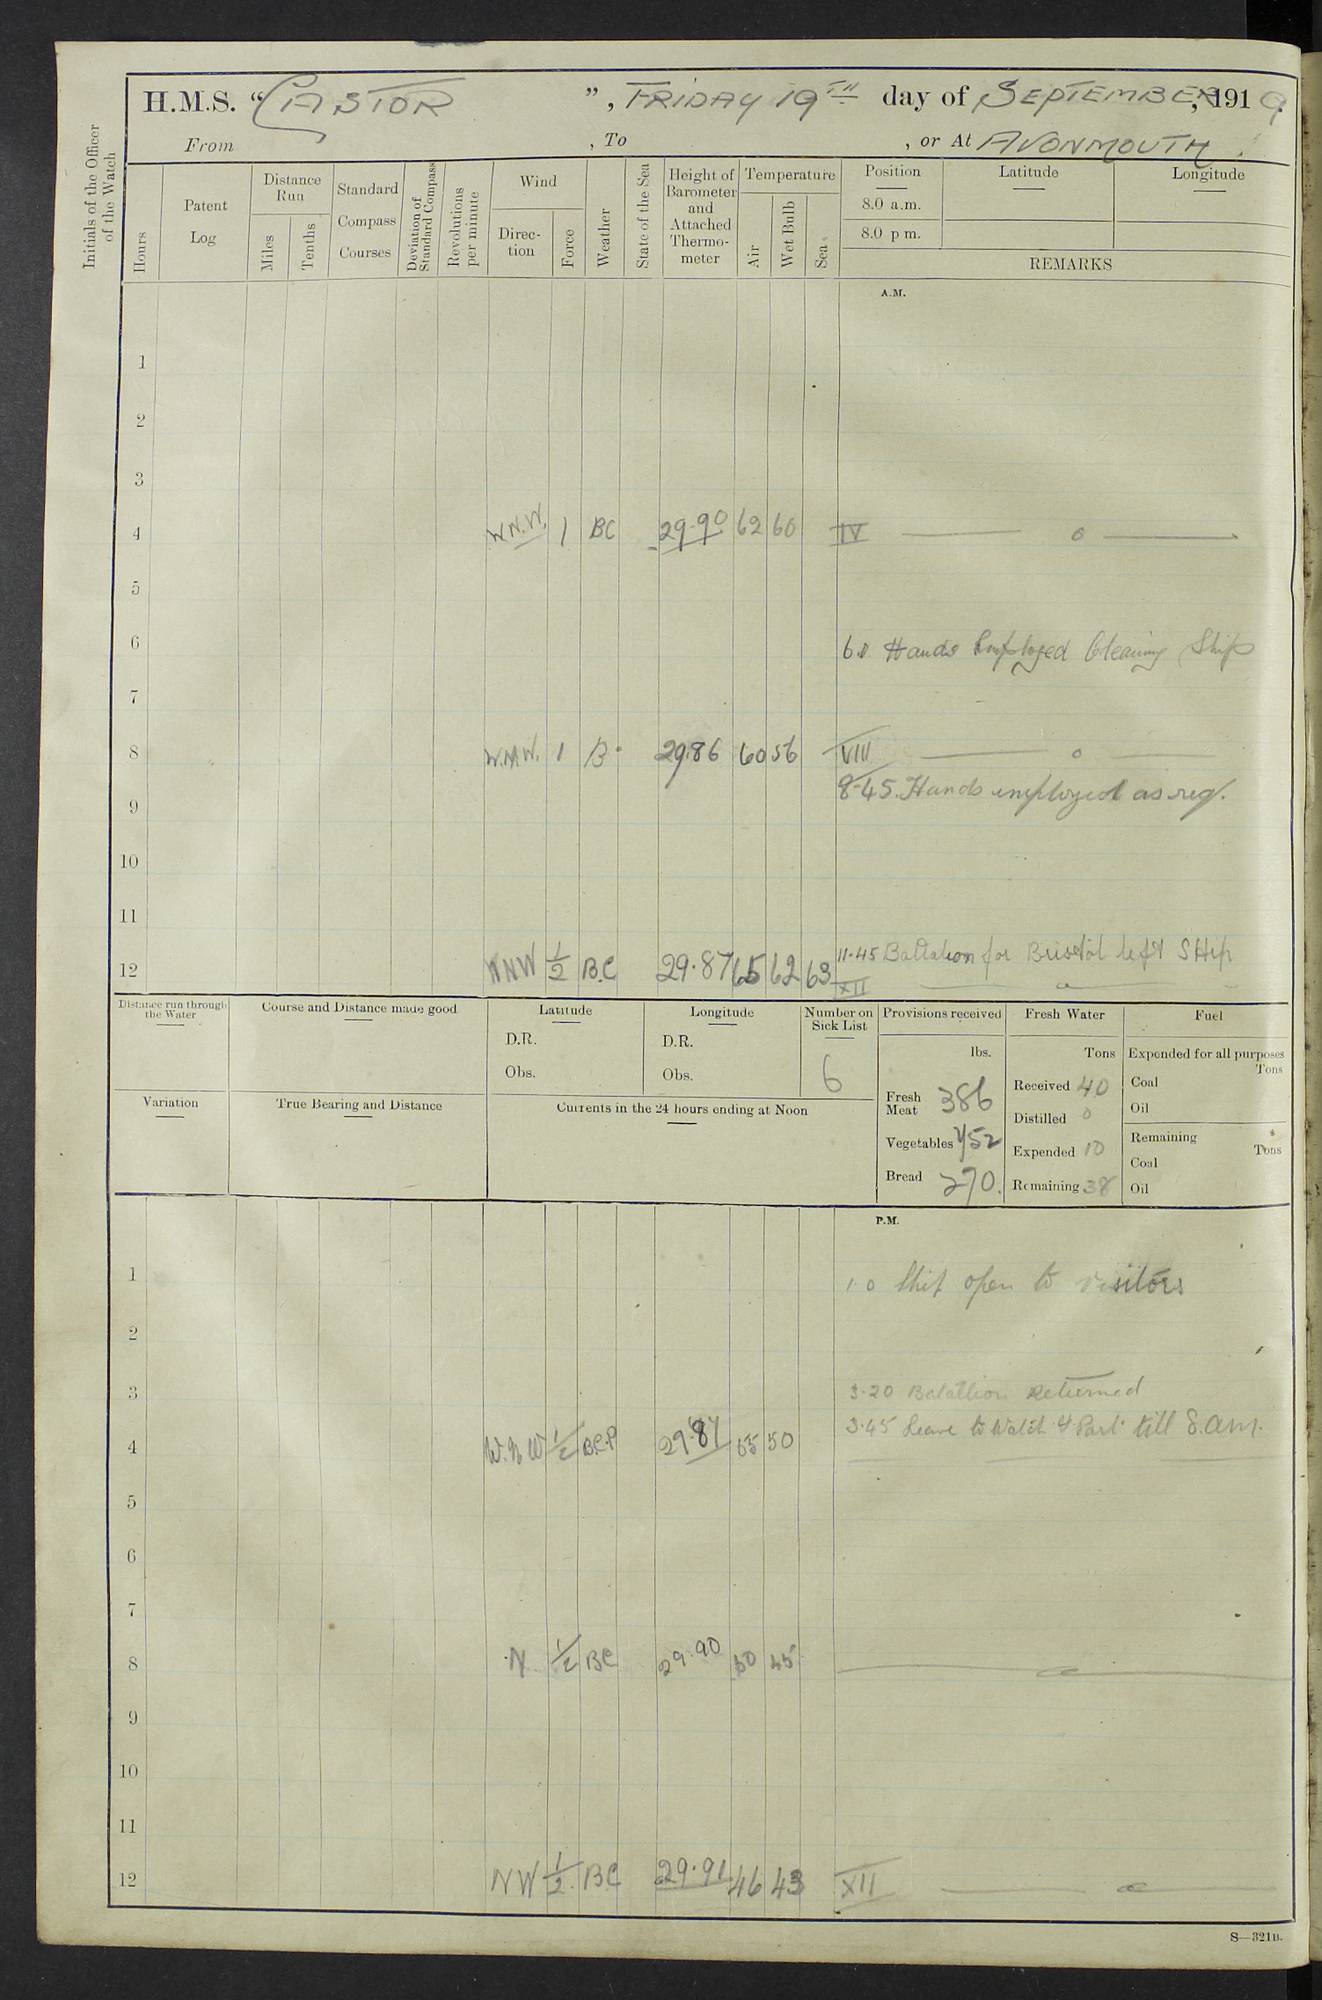 H.M.S. “CASTOR”, FRIDAY 19TH day of SEPTEMBER, 1919.
From , To , or At AVONMOUTH.
Initials of the Officer of the Watch
Hours
Patent Log
Distance Run
Miles
Tenths
Standard Compass Courses
Deviation of Standard Compass
Revolutions per minute
Wind
Direction
Force
Weather
State of the Sea
Height of Barometer and Attached Thermometer
Temperature
Air
Wet Bulb
Sea
Position
8.0 a.m.
8.0 p m.
Latitude
Longitude
REMARKS
A.M.
1
2
3
4 W.N.W. 1 BC 29.90 62 60 IV
5
6 6.0 Hands Employed Cleaning Ship
7
8 W.N.W. 1 B. 29.86 60 56 VIII
8-45. Hands employed as req.
9
10
11
11.45 Battalion for Bristol left SHip
12 WNW 1/2 B.C 29.87 65 62 63 XII
Distance run through the Water
Course and Distance made good
Latitude
D.R.
Obs.
Longitude
D.R.
Obs.
Number on Sick List
6
Provisions received
lbs.
Fresh Meat 386
Vegetables 752
Bread 270.
Fresh Water
Tons
Received 40
Distilled 0
Expended 10
Remaining 38
Fuel
Expended for all purposes
Tons
Coal
Oil
Remaining
Tons
Coal
Oil
Variation
True Bearing and Distance
Currents in the 24 hours ending at Noon
P.M.
1 1.0 Ship open to visitors
2
3 3.20 Batallion Returned
3.45 Leave to Watch & Part till 8.am.
4 W.N W 1/2 B.C.P 29.87 55 50
5
6
7
8 N 1/2 BC 29.90 50 45
9
10
11
12 NW 1/2 BC 29.91 46 43 XII
S—321B.